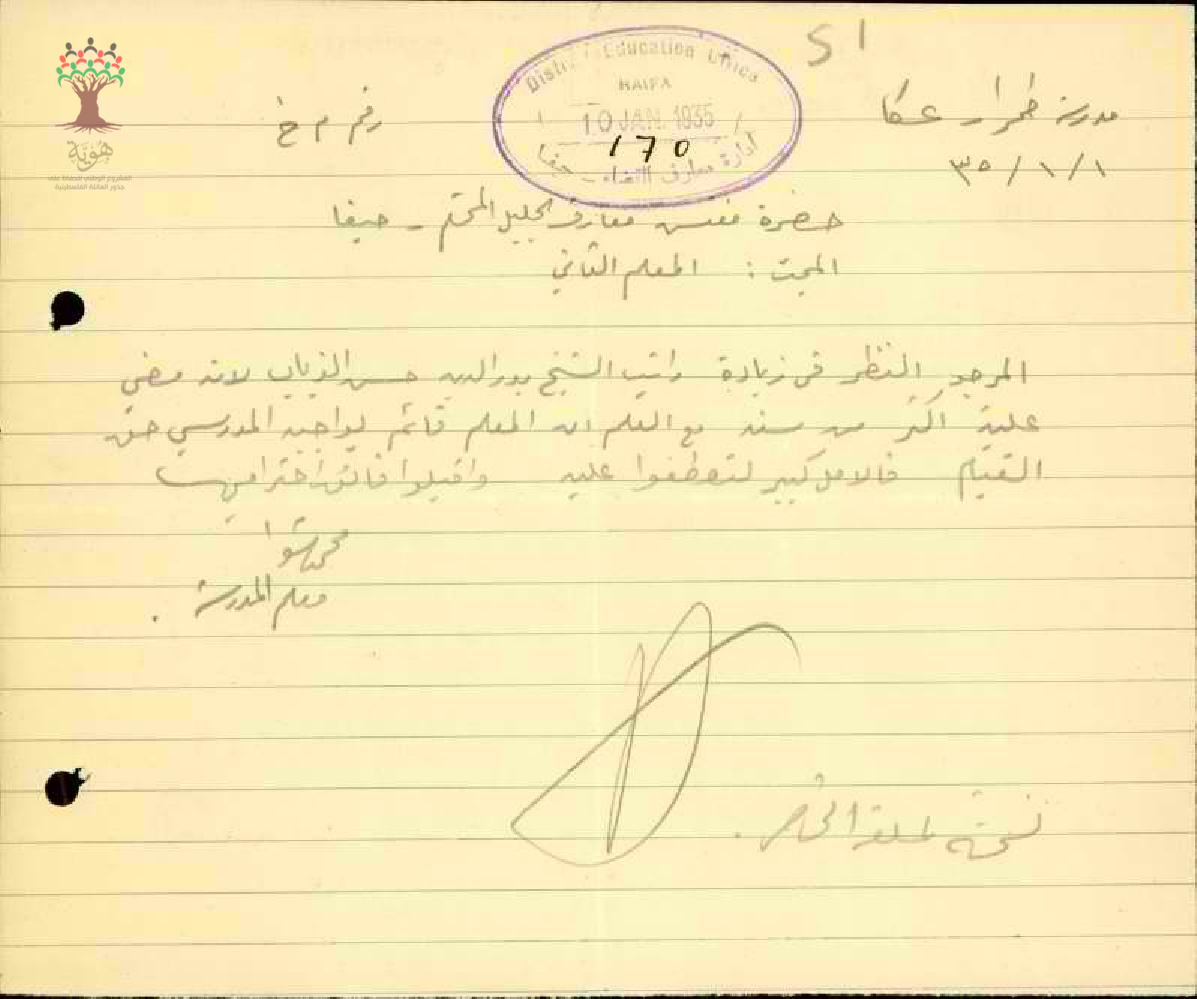 51
مدرسة طمرا - عكا
٣٥/١/١
رقم م خ
District Education Office
HAIFA
10 JAN. 1935
170
ادارة معارف القضاء - حيفا
هُوِيَّة
المشروع الوطني للحفاظ على
جذور العائلة الفلسطينية
حضرة مفتش معارف الجليل المحترم - حيفا
المبحث : المعلم الثاني
المرجو النظر في زيادة راتب الشيخ بدر الدين حسن الذياب لانه مضى
عليه اكثر من سنه مع العلم ان المعلم قائم بواجبه المدرسي حق
القيام فالامل كبير لتعطفوا عليه واقبلوا فائق احترامي
معلم المدرسة .
نسخة لملفه الخاص .